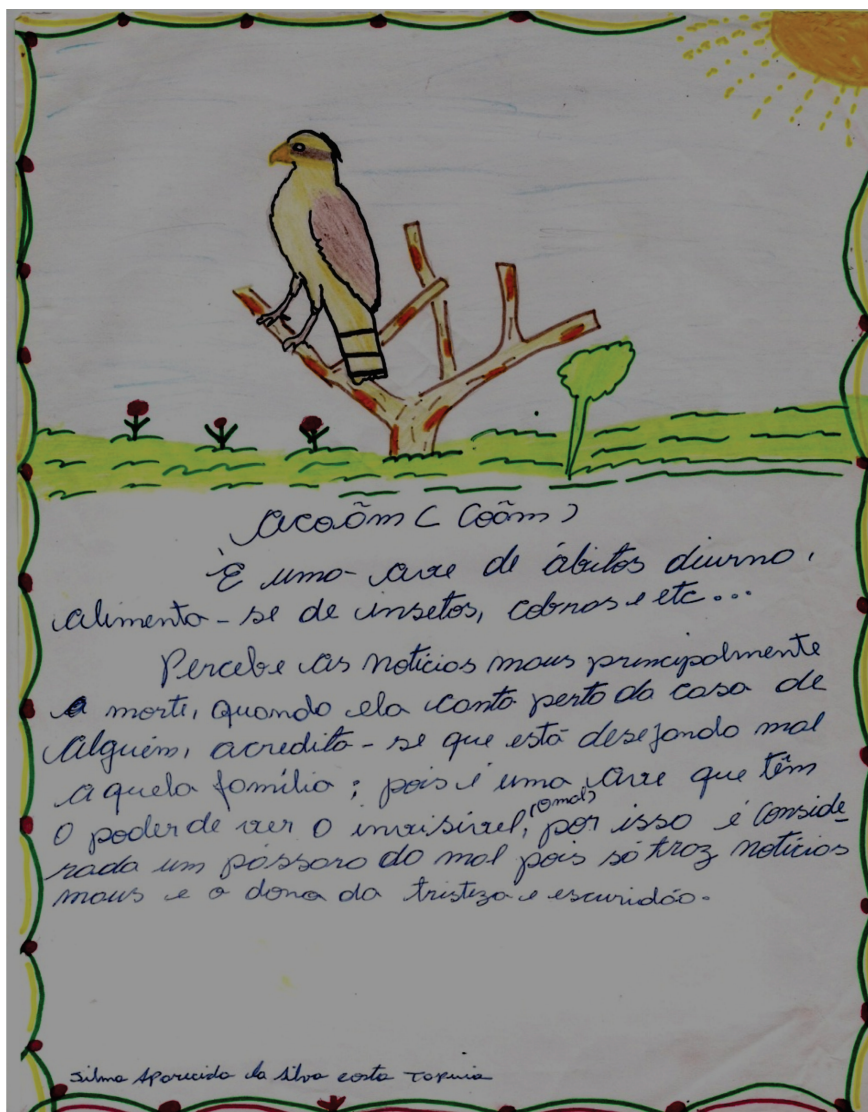 Acoãm ( Coãm )
É uma ave de ábitos diurno,
alimenta-se de insetos, cobras e etc...
Percebe as notícias maus principalmente
a morte, quando ela canta perto da casa de
alguém, acredita-se que está desejando mal
aquela família; pois é uma ave que têm
o poder de ver o invisível, (o mal) por isso é conside-
rada um pássaro do mal pois só traz notícias
maus e a dona da tristeza e escuridão.
Silma Aparecida da Silva Costa Tapuia